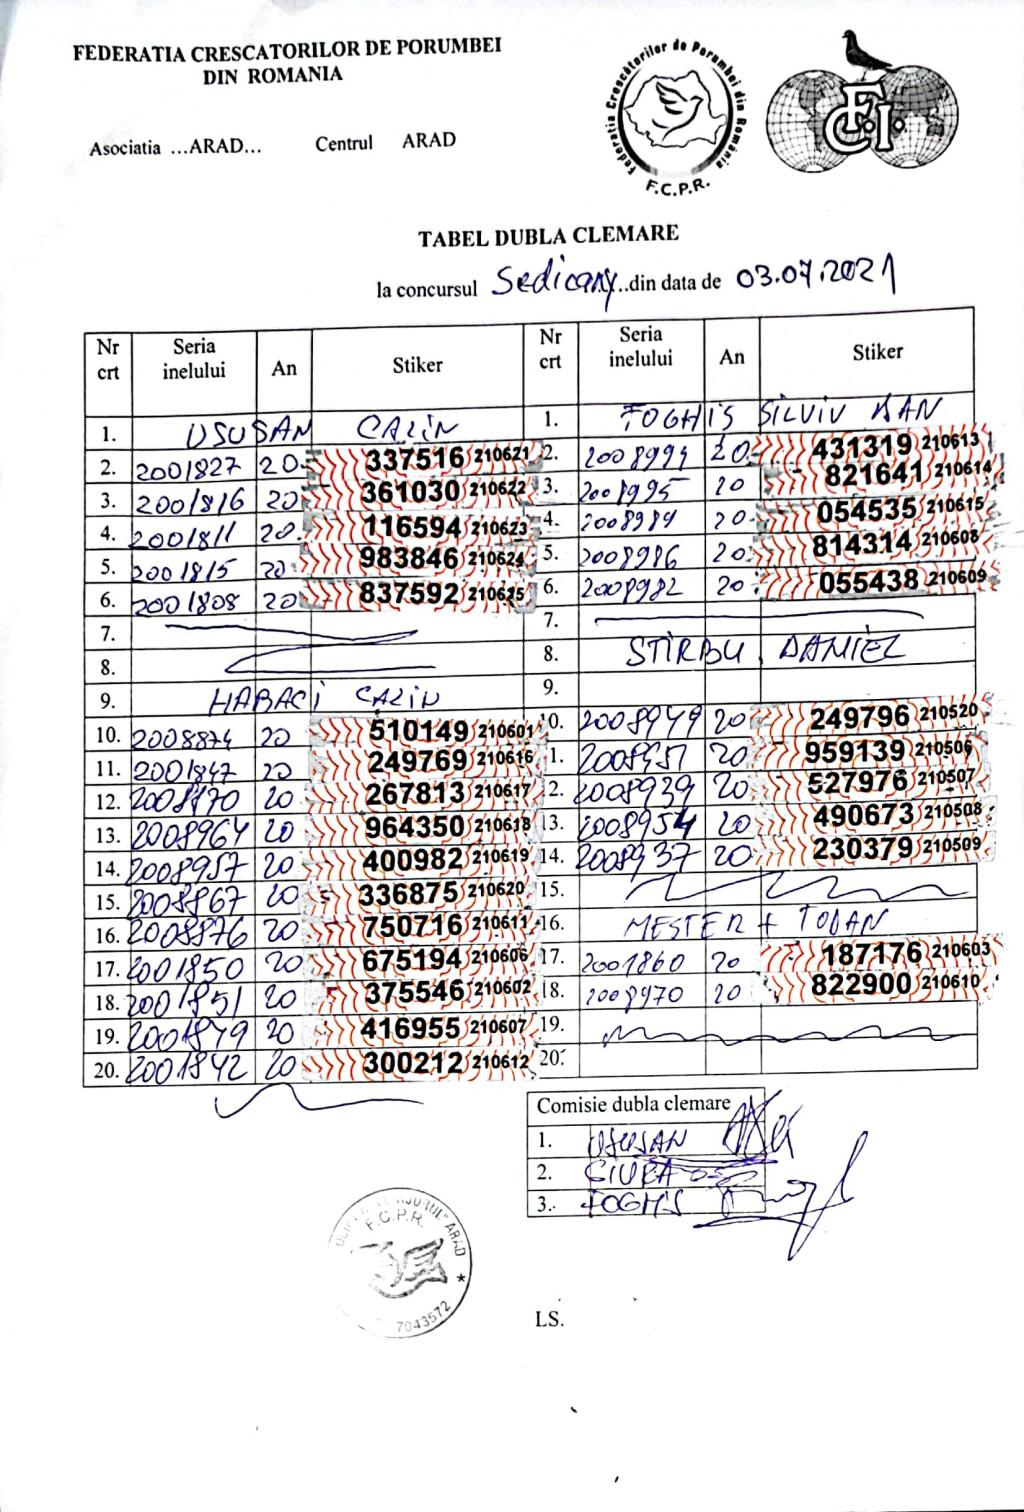 FEDERATIA CRESCATORILOR DE PORUMBEI
DIN ROMANIA
Federatia Crescătorilor de Porumbei din România
F.C.P.R.
F.C.I.
Asociatia ...ARAD... Centrul ARAD
TABEL DUBLA CLEMARE
la concursul Sedicany..din data de 03.07.2021
Nr crt Seria inelului An Stiker Nr crt Seria inelului An Stiker
1. USUSAN CALIN 1. FOGHIS SILVIU DAN
2. 2001827 20 337516 210621 2. 2008994 20 431319 210613
3. 2001816 20 361030 210622 3. 2001995 20 821641 210614
4. 2001811 20 116594 210623 4. 2008984 20 054535 210615
5. 2001815 20 983846 210624 5. 2008986 20 814314 210608
6. 2001808 20 837592 210625 6. 2008982 20 055438 210609
7. 7.
8. 8. STIRBU DANIEL
9. HABACI CALIN 9.
10. 2008874 20 510149 210601 10. 2008949 20 249796 210520
11. 2001847 20 249769 210616 1. 2008951 20 959139 210506
12. 2008970 20 267813 210617 12. 2008939 20 527976 210507
13. 2008964 20 964350 210618 13. 2008954 20 490673 210508
14. 2008957 20 400982 210619 14. 2008937 20 230379 210509
15. 2008867 20 336875 210620 15.
16. 2008876 20 750716 210611 16. MESTER + TODAN
17. 2001850 20 675194 210606 17. 2001860 20 187176 210603
18. 2001851 20 375546 210602 18. 2008970 20 822900 210610
19. 2001849 20 416955 210607 19.
20. 2001842 20 300212 210612 20.
Comisie dubla clemare
1. USUSAN
2. CIURA
3. FOGHIS
AJORUL" ARAD
F.C.P.R.
7043572
LS.